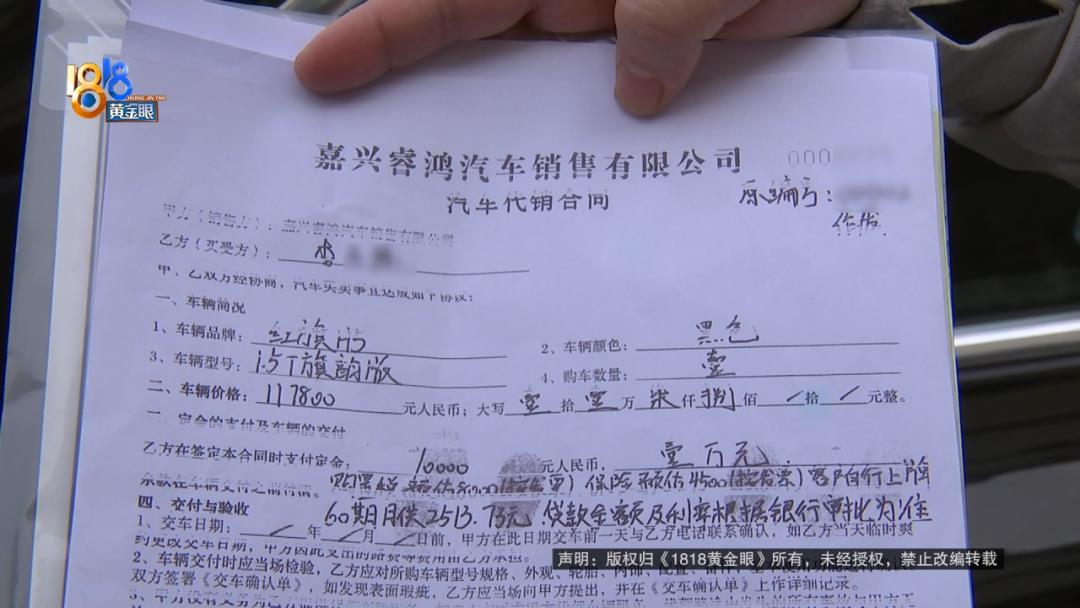 1818
黄金眼
嘉兴睿鸿汽车销售有限公司
000
汽车代销合同
原编号:
作废
甲方(销售方):嘉兴睿鸿汽车销售有限公司
乙方(买受方):
甲、乙双方经协商,汽车买卖事宜达成如下协议:
一、车辆简况
1、车辆品牌:红旗H5 2、车辆颜色:黑色
3、车辆型号:1.5T旗韵版 4、购车数量:壹
二、车辆价格:117800 元人民币;大写 壹 拾 壹 万 柒 仟 捌 佰 / 拾 / 元整。
定金的支付及车辆的交付
乙方在签定本合同时支付定金:10000 元人民币,壹万元.
购置税预估8000(按发票)保险预估4500(按发票)客户自行上牌
余款在车辆交付之前付清。
四、交付与验收 60期月供2513.73元.贷款金额及利率根据银行审批为准
1、交车日期: / 年 / 月 / 日前,甲方在此日期交车前一天与乙方电话联系确认,如乙方当天临时爽
约更改交车日期,甲方因此支出的路费等费用由乙方承担。
2、车辆交付时应当场检验,乙方应对所购车辆型号规格、外观、轮胎、内饰、配置、
双方签署《交车确认单》,如发现表面瑕疵,乙方应当场向甲方提出,并在《交车确认单》上作详细记录。
声明:版权归《1818黄金眼》所有,未经授权,禁止改编转载